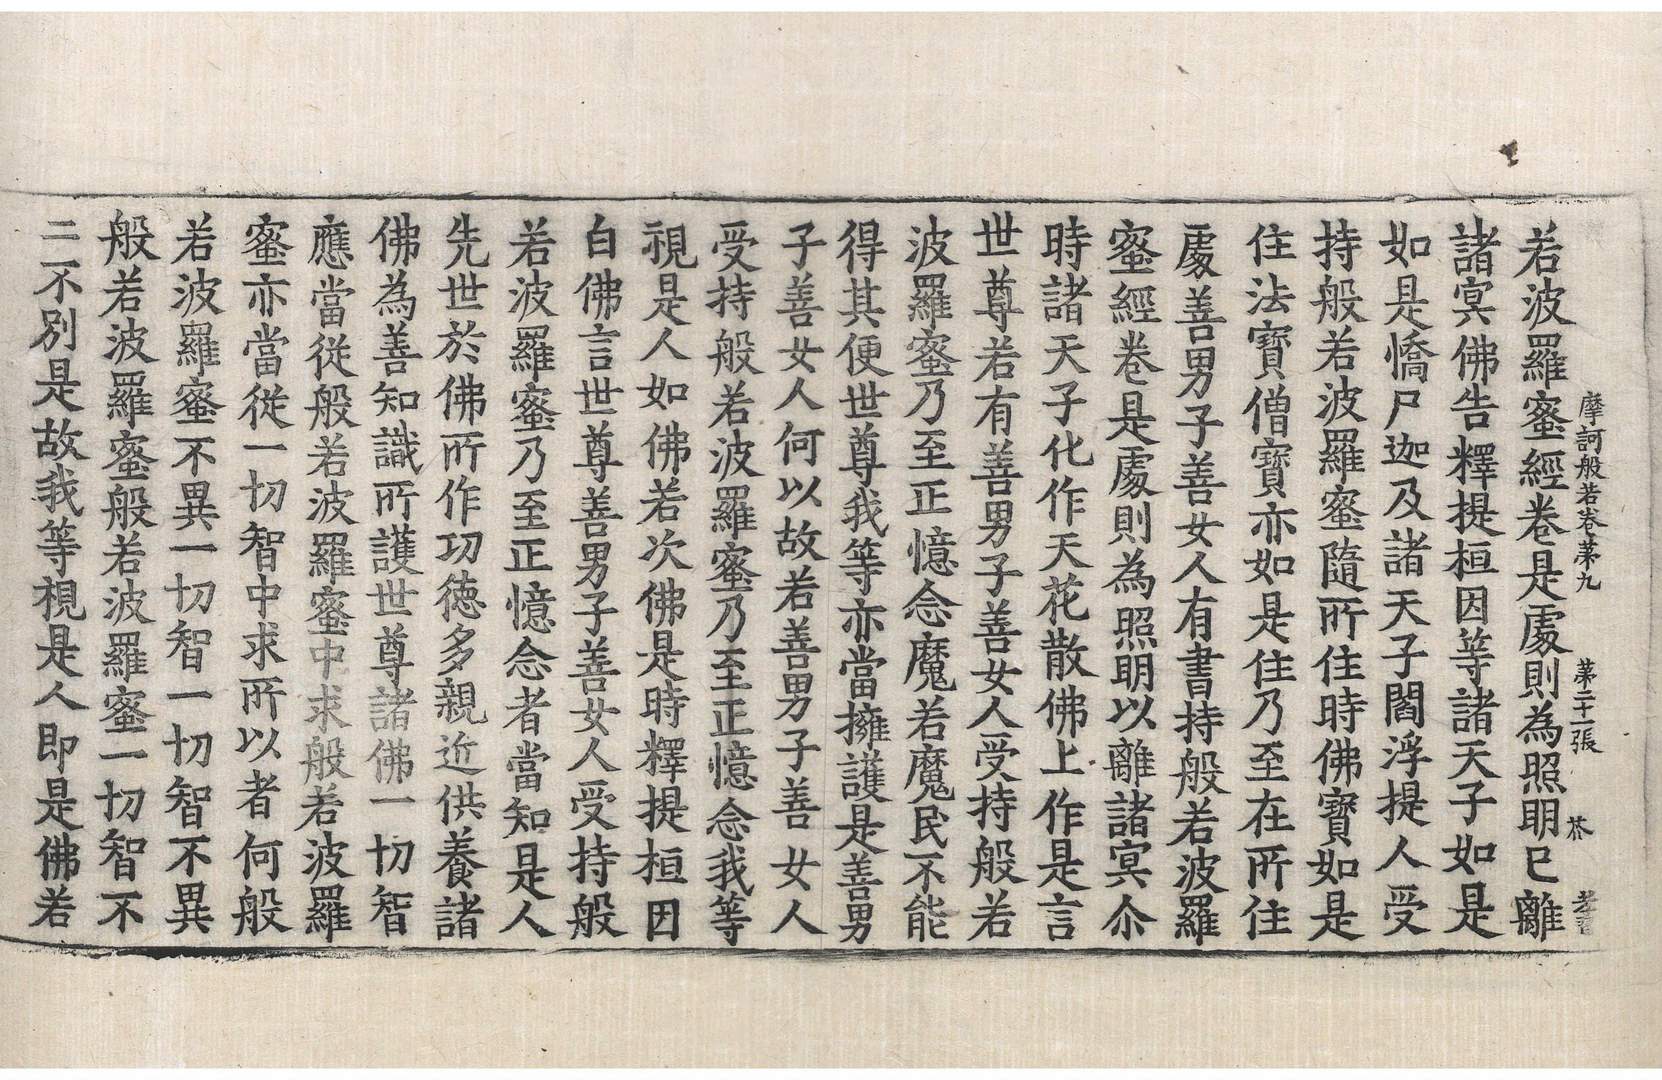 摩訶般若卷苐九　苐二十張　菾
若波羅蜜經卷是處則為照明已離
諸冥佛告釋提桓因等諸天子如是
如是憍尸迦及諸天子閻浮提人受
持般若波羅蜜隨所住時佛寶如是
住法寶僧寶亦如是住乃至在所住
處善男子善女人有書持般若波羅
蜜經卷是處則為照明以離諸冥尒
時諸天子化作天花散佛上作是言
世尊若有善男子善女人受持般若
波羅蜜乃至正憶念魔若魔民不能
得其便世尊我等亦當擁護是善男
子善女人何以故若善男子善女人
受持般若波羅蜜乃至正憶念我等
視是人如佛若次佛是時釋提桓因
白佛言世尊善男子善女人受持般
若波羅蜜乃至正憶念者當知是人
先世於佛所作功德多親近供養諸
佛為善知識所護世尊諸佛一切智
應當從般若波羅蜜中求般若波羅
蜜亦當從一切智中求所以者何般
若波羅蜜不異一切智一切智不異
般若波羅蜜般若波羅蜜一切智不
二不別是故我等視是人即是佛若